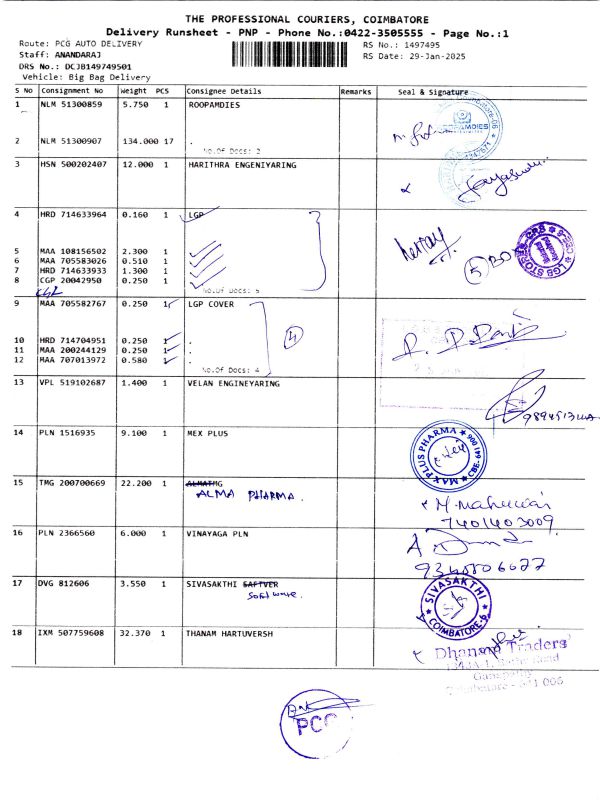 THE PROFESSIONAL COURIERS, COIMBATORE
Delivery Runsheet - PNP - Phone No.:0422-3505555 - Page No.:1
Route: PCG AUTO DELIVERY
RS No.: 1497495
Staff: ANANDARAJ
RS Date: 29-Jan-2025
DRS No.: DCJB149749501
Vehicle: Big Bag Delivery
S No Consignment No Weight PCS Consignee Details Remarks Seal & Signature
1 NLM 51300859 5.750 1 ROOPAMDIES
2 NLM 51300907 134.000 17 .
No.Of Docs: 2
3 HSN 500202407 12.000 1 HARITHRA ENGENIYARING
4 HRD 714633964 0.160 1 LGP
5 MAA 108156502 2.300 1
6 MAA 705583026 0.510 1
7 HRD 714633933 1.300 1
8 CGP 20042950 0.250 1
No.Of Docs: 5
5
LGB STORES-CBS
9 MAA 705582767 0.250 1 LGP COVER
10 HRD 714704951 0.250 1 .
11 MAA 200244129 0.250 1 .
12 MAA 707013972 0.580 1 .
No.Of Docs: 4
4
13 VPL 519102687 1.400 1 VELAN ENGINEYARING
14 PLN 1516935 9.100 1 MEX PLUS
MAX PLUS PHARMA ★ CBE-641 006
15 TMG 200700669 22.200 1 ALMATMG
ALMA PHARMA.
7401403009
16 PLN 2366560 6.000 1 VINAYAGA PLN
17 DVG 812606 3.550 1 SIVASAKTHI SAFTVER
Software.
SIVASAKTHI
COIMBATORE-6
18 IXM 507759608 32.370 1 THANAM HARTUVERSH
Dhanam Traders
PCG